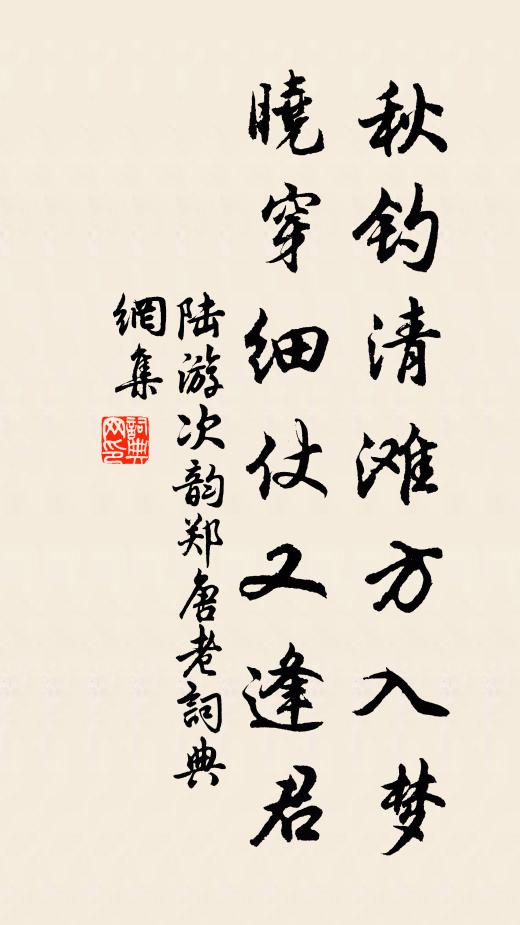 秋钓清滩方入梦
曉穿细仗又逢君
陆游次韵郑唐老詞典
網集
詞典网印